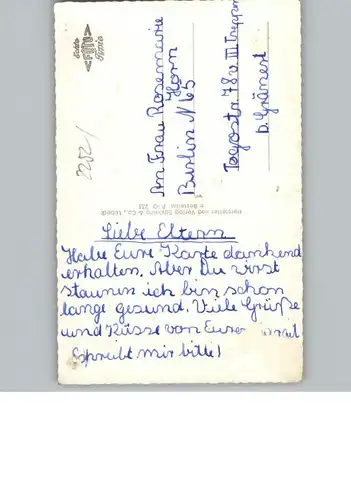 Echte
FOTO
2252/
An Frau Rosemarie
Horn
Berlin N 65
Tegostr. 78 v. III Treppen
b. Gränert
Hersteller und Verlag Schöning & Co., Lübeck
Liebe Eltern
Habe Eure Karte dankend
erhalten. Aber Du wirst
staunen ich bin schon
lange gesund. Viele Grüße
und Küsse von Eurer
Schreibt mir bitte!